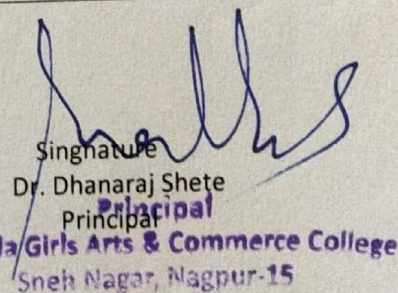 Singnature
Dr. Dhanaraj Shete
Principal
Principal
Girls Arts & Commerce College
Sneh Nagar, Nagpur-15